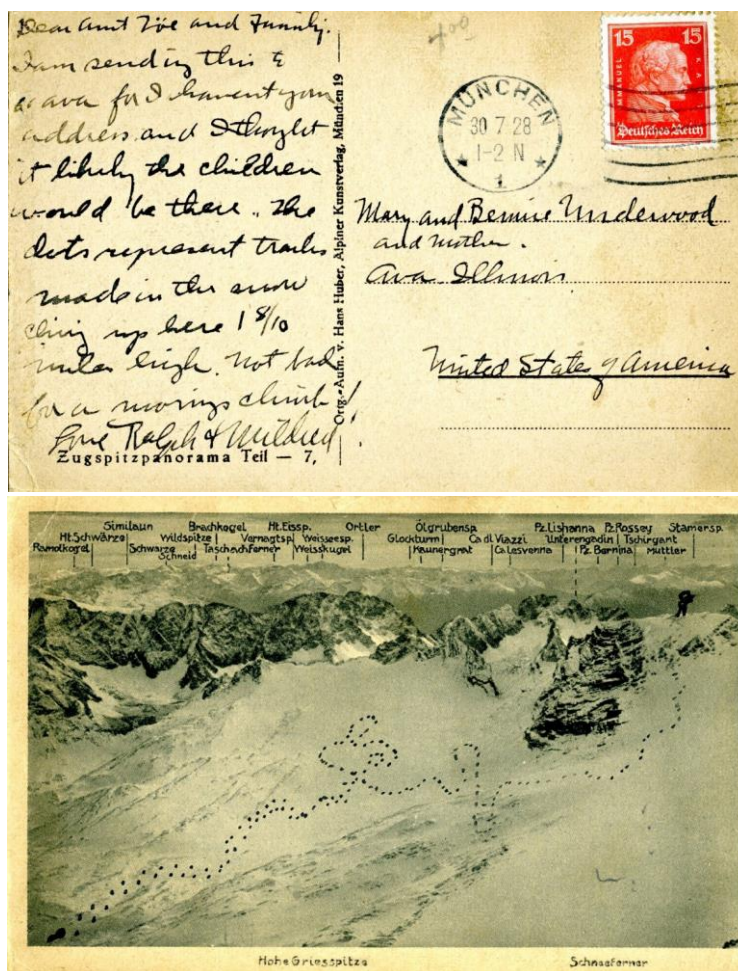 Dear Aunt Zöe and Family.
I am sending this to
Ava for I havent your
address and I thought
it likely the children
would be there. The
dots represent tracks
made in the snow
up here 1 8/10
miles high. Not bad
for a mornings climb!
Love Ralph & Mildred
Zugspitzpanorama Teil — 7,
Org.-Aufn. v. Hans Huber, Alpiner Kunstverlag, München 19 —
400
MÜNCHEN
30 7 28
1-2 N
1
15 15
IMMANUEL KANT
Deutsches Reich
Mary and Bernice Underwood
and Mother.
Ava Illinois
United States of America
Similaun Brachkogel Ht.Eissp. Ortler Ölgrubensp. Pz.Lishanna Pz.Rossey Stamersp.
Ht.Schwärze Wildspitze Vernagtsp. Weisseesp. Glockturm Ca dl Viazzi Unterengadin Tschirgant
Ramolkogel Schwarze Schneid Taschachferner Weisskugel Kaunergrat Ca lesvenna Pz.Bernina Muttler
Hohe Griesspitze Schneeferner